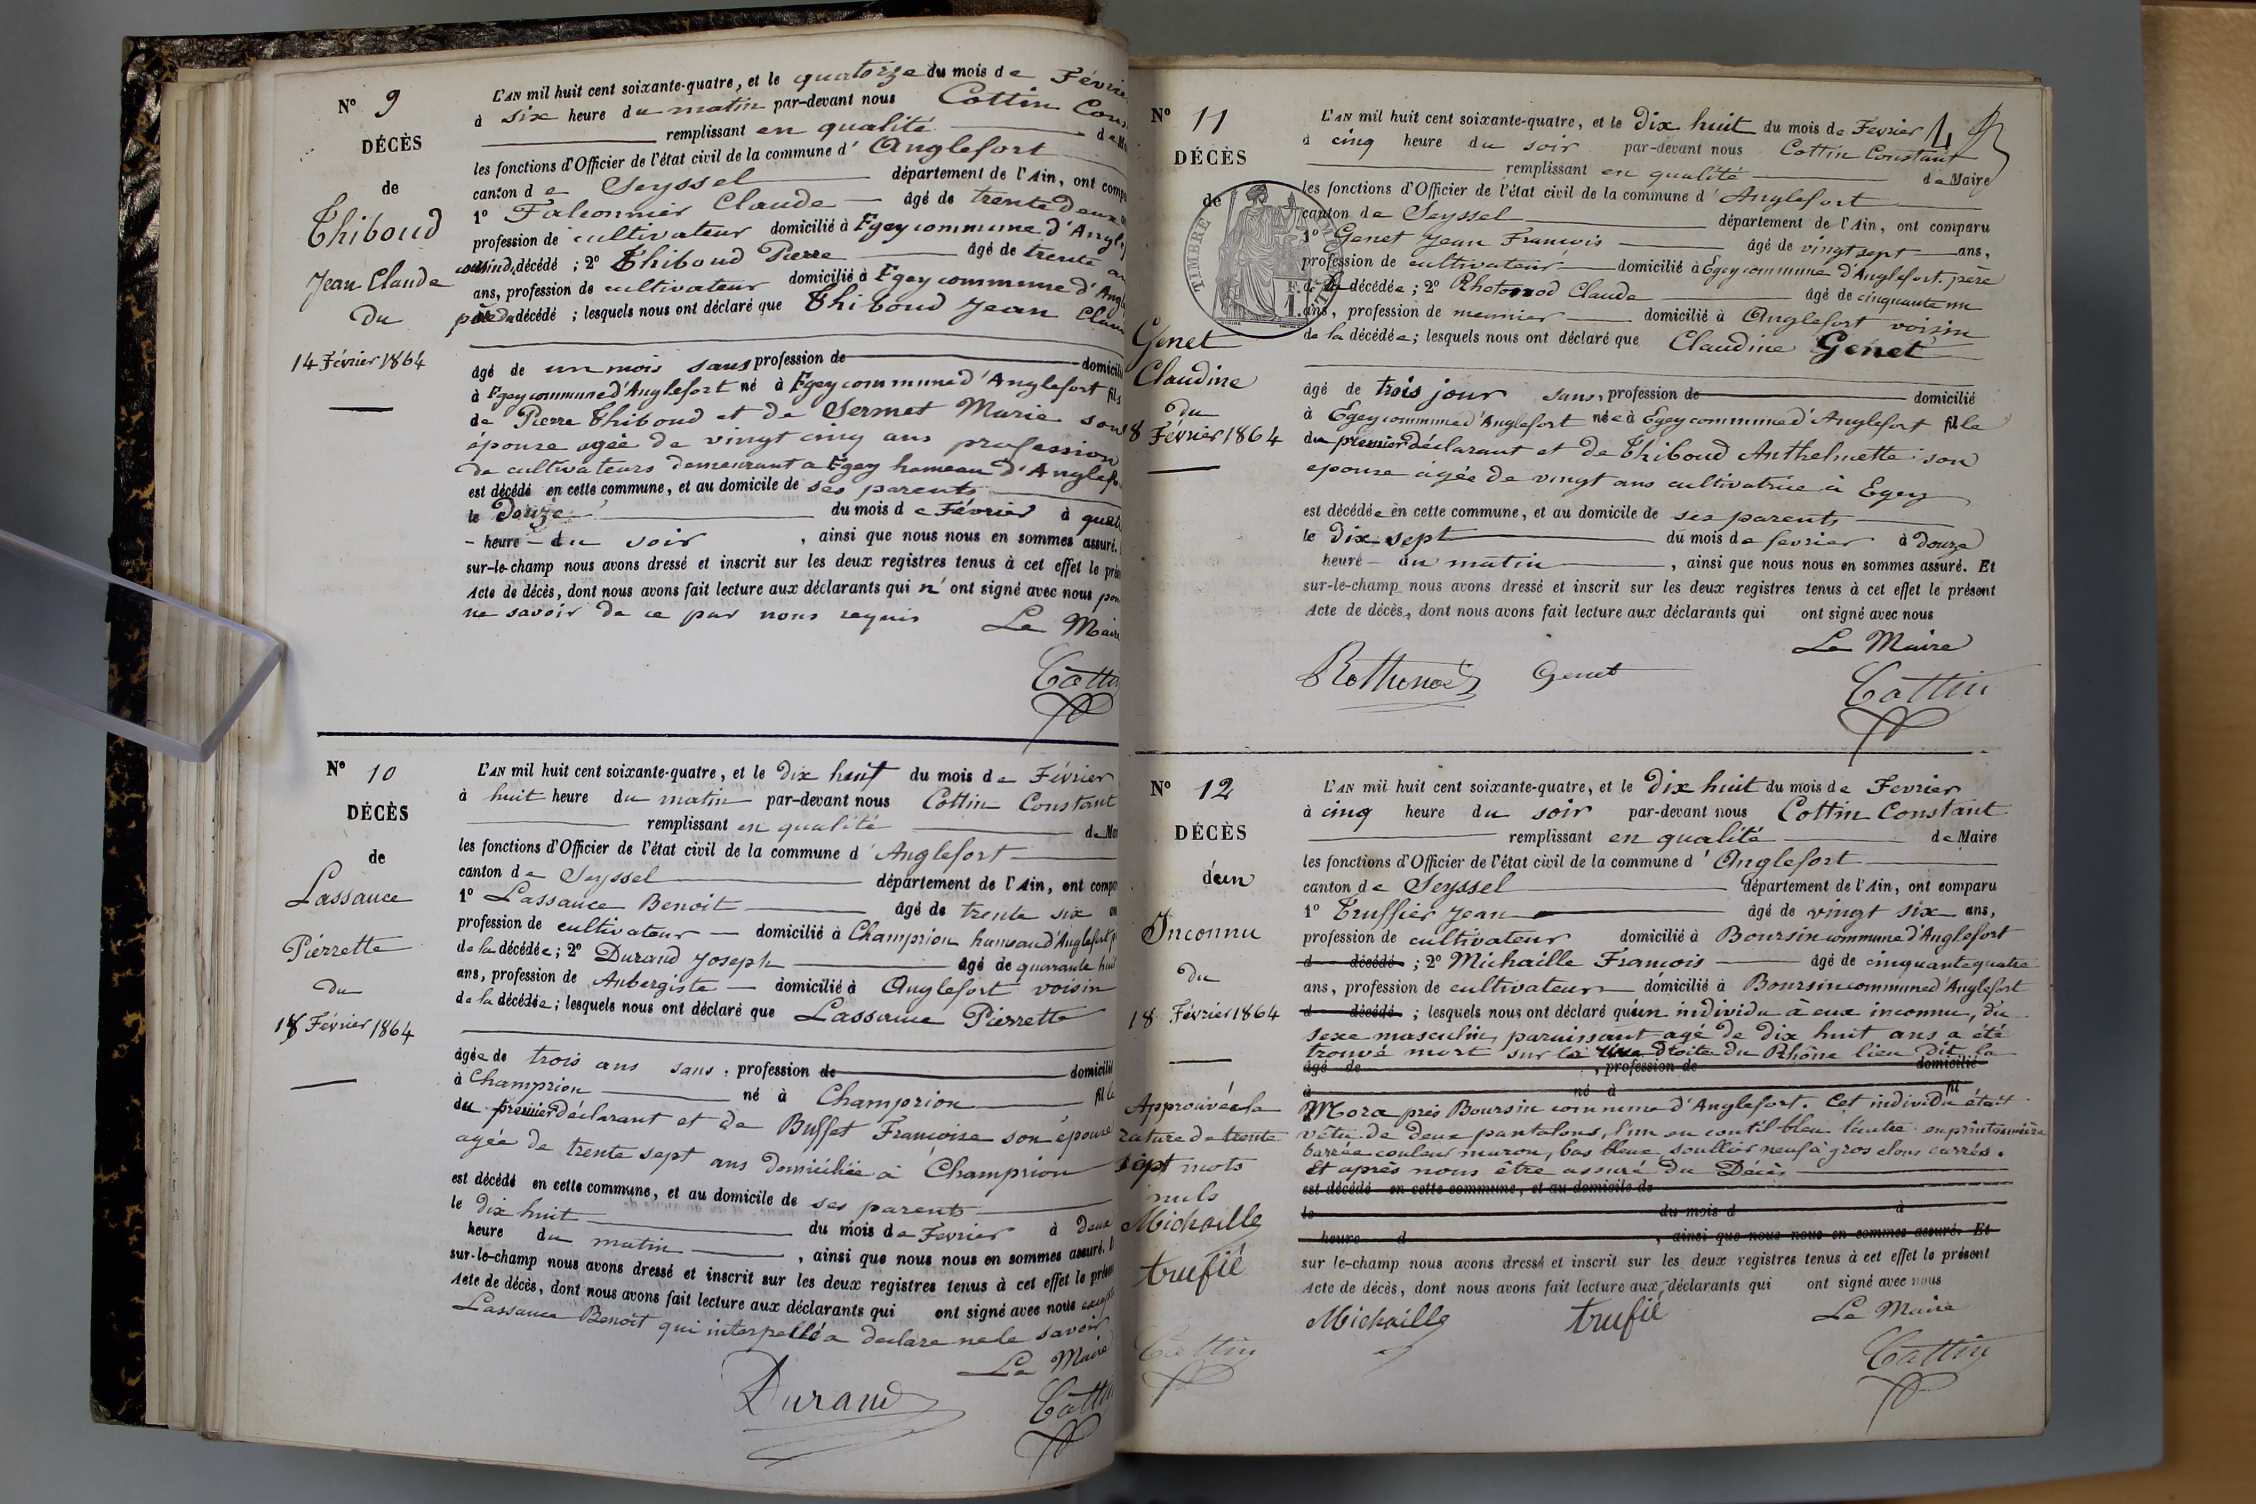 N° 9
DÉCÈS
de
Thiboud
Jean Claude
du
14 Février 1864
L'AN mil huit cent soixante-quatre, et le quatorze du mois de Février
à six heure du matin par-devant nous Cottin Cons
remplissant en qualité de M
les fonctions d'Officier de l'état civil de la commune d' Anglefort
canton de Seyssel département de l'Ain, ont comp
1° Falconnier Claude âgé de trente deux
profession de cultivateur domicilié à Egey commune d'Angl
décédé ; 2° Thiboud Pierre âgé de trente
ans, profession de cultivateur domicilié à Egey commune d'Angl
père du décédé ; lesquels nous ont déclaré que Thiboud Jean Clau
âgé de un mois sans profession de domicilié
à Egey commune d'Anglefort né à Egey commune d'Anglefort fils
de Pierre Thiboud et de Sermet Marie son
épouse agée de vingt cinq ans profession
de cultivateurs demeurant a Egey hameau d'Anglefo
est décédé en cette commune, et au domicile de ses parents
le Douze du mois de Février à quat
- heure - du soir , ainsi que nous nous en sommes assuré.
sur-le-champ nous avons dressé et inscrit sur les deux registres tenus à cet effet le prés
Acte de décès, dont nous avons fait lecture aux déclarants qui n' ont signé avec nous pou
ne savoir de ce par nous requis Le Maire
Cottin
N° 10
DÉCÈS
de
Lassauce
Pierrette
du
18 Février 1864
L'AN mil huit cent soixante-quatre, et le dix huit du mois de Février
à huit heure du matin par-devant nous Cottin Constant
remplissant en qualité de Mai
les fonctions d'Officier de l'état civil de la commune d' Anglefort
canton de Seyssel département de l'Ain, ont comp
1° Lassauce Benoit âgé de trente six an
profession de cultivateur domicilié à Champrion hameau d'Anglefort p
de la décédée ; 2° Durand Joseph âgé de quarante huit
ans, profession de Aubergiste domicilié à Anglefort voisin
de la décédée ; lesquels nous ont déclaré que Lassauce Pierrette
âgée de trois ans sans , profession de domicilié
à Champrion né à Champrion fille
du premier déclarant et de Buffet Francoise son épouse
agée de trente sept ans domiciliée à Champrion
est décédé en cette commune, et au domicile de ses parents
le dix huit du mois de Fevrier à deux
heure du matin , ainsi que nous nous en sommes assuré. E
sur-le-champ nous avons dressé et inscrit sur les deux registres tenus à cet effet le prése
Acte de décès, dont nous avons fait lecture aux déclarants qui ont signé avec nous excepté
Lassauce Benoit qui interpellé a declare ne le savoir
Le Maire
Durand Cottin
N° 11
DÉCÈS
de
TIMBRE
Genet
Claudine
du
8 Février 1864
4
L'AN mil huit cent soixante-quatre, et le dix huit du mois de Fevrier
à cinq heure du soir par-devant nous Cottin Constant
remplissant en qualité de Maire
les fonctions d'Officier de l'état civil de la commune d' Anglefort
canton de Seyssel département de l'Ain, ont comparu
1° Genet Jean Francois âgé de vingt sept ans,
profession de cultivateur domicilié à Egey commune d'Anglefort père
de la décédée ; 2° Rhotonod Claude âgé de cinquante un
ans, profession de meunier domicilié à Anglefort voisin
de la décédée ; lesquels nous ont déclaré que Claudine Genet
âgé de trois jour sans, profession de domicilié
à Egey commune d'Anglefort née à Egey commune d'Anglefort fille
du premier déclarant et de Thiboud Anthelmette son
epouse agée de vingt ans cultivatrice à Egey
est décédée en cette commune, et au domicile de ses parents
le dix sept du mois de fevrier à douze
heure - du matin , ainsi que nous nous en sommes assuré. Et
sur-le-champ nous avons dressé et inscrit sur les deux registres tenus à cet effet le présent
Acte de décès, dont nous avons fait lecture aux déclarants qui ont signé avec nous
Le Maire
Rothonod Genet Cottin
N° 12
DÉCÈS
d'un
Inconnu
du
18 Février 1864
Approuvée la
rature de trente
sept mots
nuls
Michaille
trufié
Cottin
L'AN mil huit cent soixante-quatre, et le dix huit du mois de Fevrier
à cinq heure du soir par-devant nous Cottin Constant
remplissant en qualité de Maire
les fonctions d'Officier de l'état civil de la commune d' Anglefort
canton de Seyssel département de l'Ain, ont comparu
1° Truffier Jean âgé de vingt six ans,
profession de cultivateur domicilié à Boursin commune d'Anglefort
d décédé ; 2° Michaille Francois âgé de cinquante quatre
ans, profession de cultivateur domicilié à Boursin commune d'Anglefort
d décédé ; lesquels nous ont déclaré qu'un individu à eux inconnu, du
sexe masculin, paraissant agé de dix huit ans a été
trouvé mort sur la rive droite du Rhône lieu dit la
âgé de , profession de domicilié
à né à fil
Mora près Boursin commune d'Anglefort. Cet individu était
vêtu de deux pantalons, l'un en coutil bleu l'autre en printannière
barrée couleur maron, bas bleux soullier neuf à gros clous carrés.
Et après nous être assuré du Décès
est décédé en cette commune, et au domicile de
le du mois d à
heure d , ainsi que nous nous en sommes assuré. Et
sur le-champ nous avons dressé et inscrit sur les deux registres tenus à cet effet le présent
Acte de décès, dont nous avons fait lecture aux déclarants qui ont signé avec nous
Michaille trufié Le Maire
Cottin